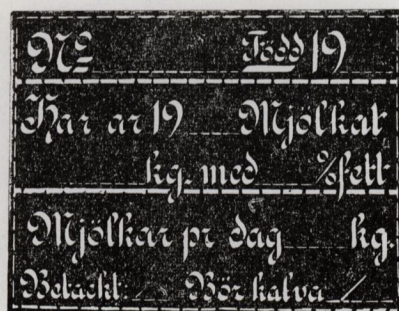 Nº Född 19
Har år 19 Mjölkat
kg. med % fett
Mjölkar pr dag kg.
Betäckt / Bör kalva /